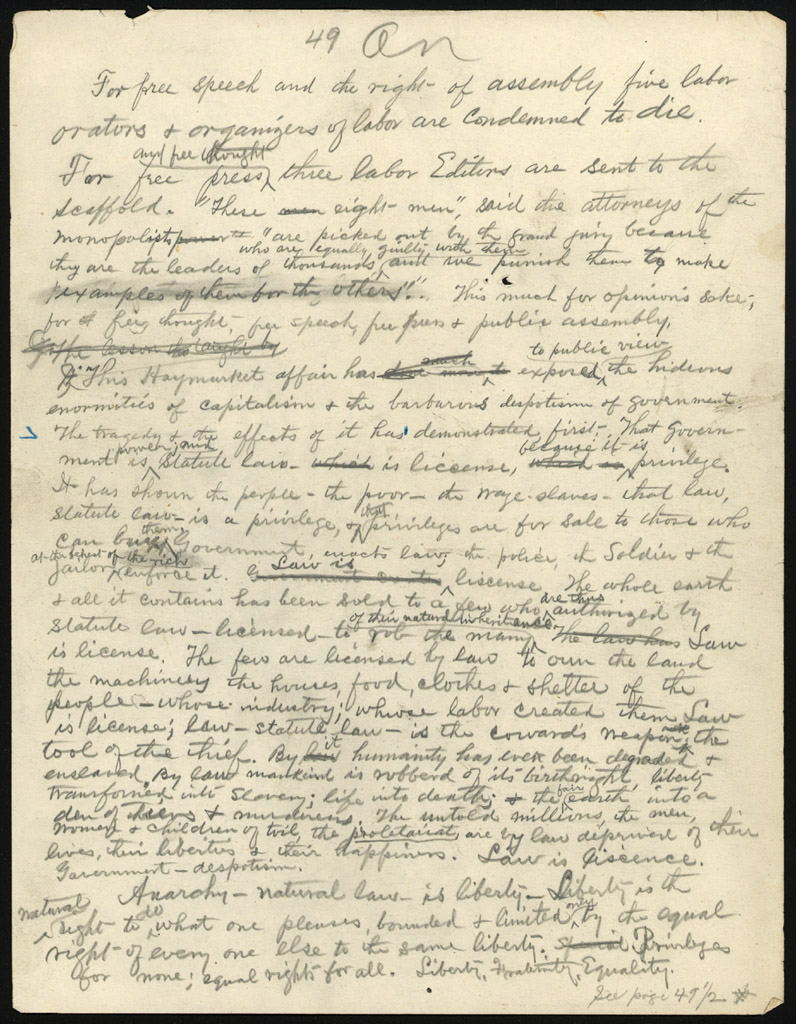 49 On
For free speech and the right of assembly five labor
orators & organizers of labor are condemned to die.
and free thought
For free press three labor Editors are sent to the
scaffold. "These men eight men", said the attorneys of the
monopolists "are picked out by the grand jury because
who are equally guilty with them
they are the leaders of thousands and we punish them to make
examples of them for the others!". This much for opinion's sake;
for free thought, free speech, free press & public assembly.
The lesson taught by
to public view
This Haymarket affair has exposed the hideous
enormities of capitalism & the barbarous despotism of government.
The tragedy & the effects of it has demonstrated first- That Govern-
power; and
because it is
ment is Statute law- which is liscense, privilege.
It has shown the people - the poor - the wage-slaves - that law,
that
statute law - is a privilege, & privileges are for sale to those who
them
can buy Government, enacts law; the police, the Soldier & the
at the behest of the rich
jailor enforce it. Law is liscense. The whole earth
are thus
& all it contains has been sold to a few who authorized by
of their natural inheritance.
statute law - licensed - to rob the many The law has Law
is license. The few are licensed by law to own the land
the machinery the houses, food, clothes & shelter of the
people - whose industry; whose labor created them Law
is license; law - statute law - is the coward's weapon, the
tool of the thief. By it humanity has ever been degraded &
enslaved. By law mankind is robberd of its birthright, liberty
fair
transformed into Slavery; life into death; & the earth into a
den of thieves & murderers. The untold millions, the men,
women & children of toil, the proletariat, are by law deprived of their
lives, their liberties & their happiness. Law is liscence.
Government - despotism.
Anarchy - natural law - is liberty - Liberty is the
natural
do
only
right to what one pleases, bounded & limited by the equal
right of every one else to the same liberty. Privileges
for none; equal rights for all. Liberty, Fraternity, Equality.
See page 49 1/2